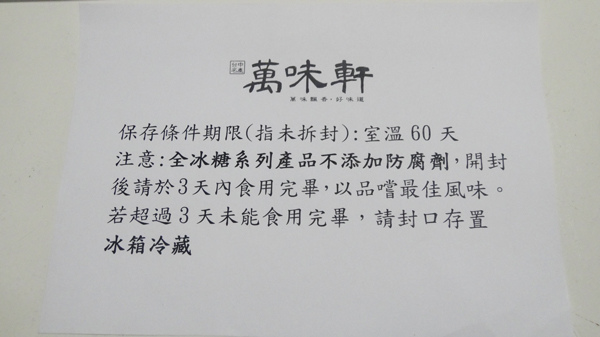 萬味軒
萬味飄香·好味道
保存條件期限(指未拆封):室溫60天
注意:全冰糖系列產品不添加防腐劑,開封
後請於3天內食用完畢,以品嚐最佳風味。
若超過3天未能食用完畢,請封口存置
冰箱冷藏